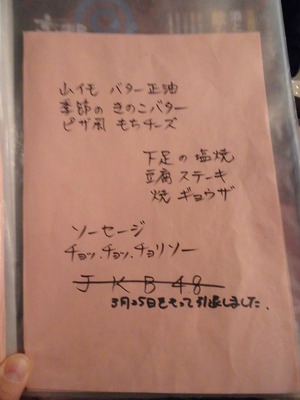 山イモ バター正油
季節の きのこバター
ピザ風 もちチーズ
下足の塩焼
豆腐ステーキ
焼ギョウザ
ソーセージ
チョッ、チョッ、チョリソー
JKB48
3月25日をもって引退しました.